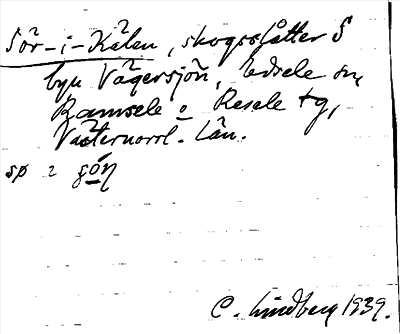 Sör-i-Kälen, skogsslåtter S
byn Vägersjön, Edsele sn,
Ramsele o Resele tg,
Västernorrl. Län.
sø 2
C. Lindberg 1939.